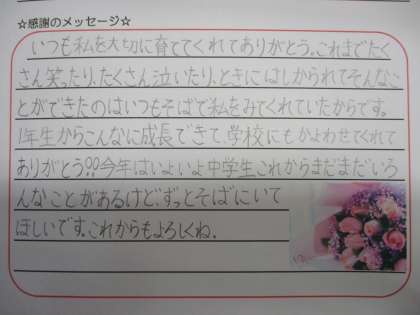 ☆感謝のメッセージ☆
いつも私を大切に育ててくれてありがとう。これまでたく
さん笑ったり、たくさん泣いたり、ときにはしかられてそんなこ
とができたのはいつもそばで私をみてくれていたからです。
1年生からこんなに成長できて、学校にもかよわせてくれて
ありがとう!!今年はいよいよ中学生これからまだまだいろ
んなことがあるけど、ずっとそばにいて
ほしいです。これからもよろしくね.